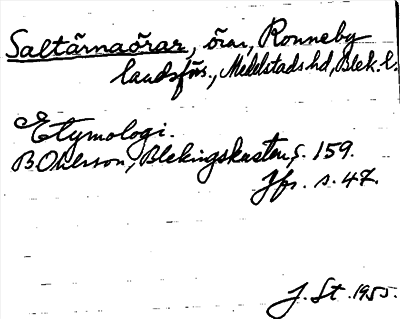 Saltärnaörar, örar, Ronneby
landsförs., Medelstads hd, Blek. l.
Etymologi.
B Ohlsson, Blekingskusten, s. 159.
Jfr s. 47.
J. St. 1955.